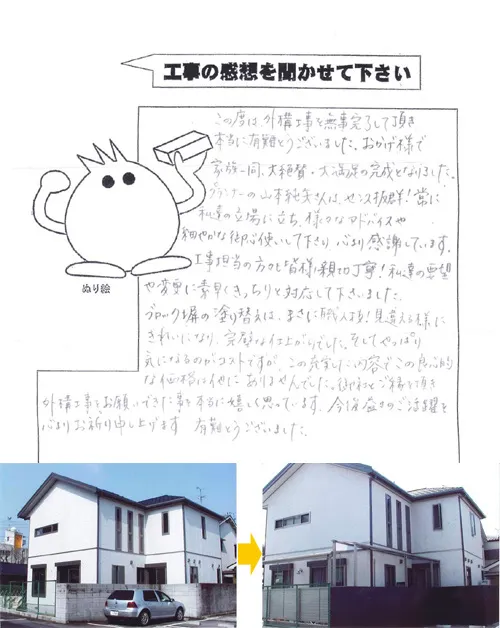 工事の感想を聞かせて下さい
この度は、外構工事を無事完了して頂き
本当に有難とうございました。おかげ様で
家族一同、大絶賛・大満足の完成となりました。
プランナーの山本純矢さんは、センス抜群！常に
私達の立場に立ち、様々なアドバイスや
細やかな御心使いして下さり、心より感謝しています。
工事担当の方々も皆様親切丁寧！私達の要望
や変更に素早くきっちりと対応して下さいました。
ブロック塀の塗り替えは、まさに職人技！見違える様に
きれいになり、完璧な仕上がりでした。そしてやっぱり
気になるのがコストですが、この充実した内容でこの良心的
な価格は他にありませんでした。御社とご縁を頂き
外構工事をお願いできた事を本当に嬉しく思っています。今後益々のご活躍を
心よりお祈り申し上げます 有難とうございました。
ぬり絵